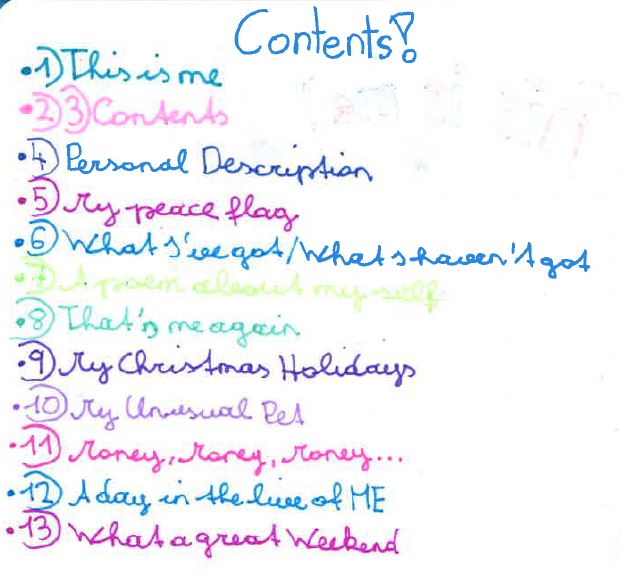 Contents!
•1) This is me
•2) 3) Contents
•4) Personal Description
•5) My peace flag
•6) What I've got/What I haven't got
•7) A poem about my self
•8) That's me again
•9) My Christmas Holidays
•10) My Unusual Pet
•11) Money, Money, Money...
•12) A day in the live of ME
•13) What a great Weekend